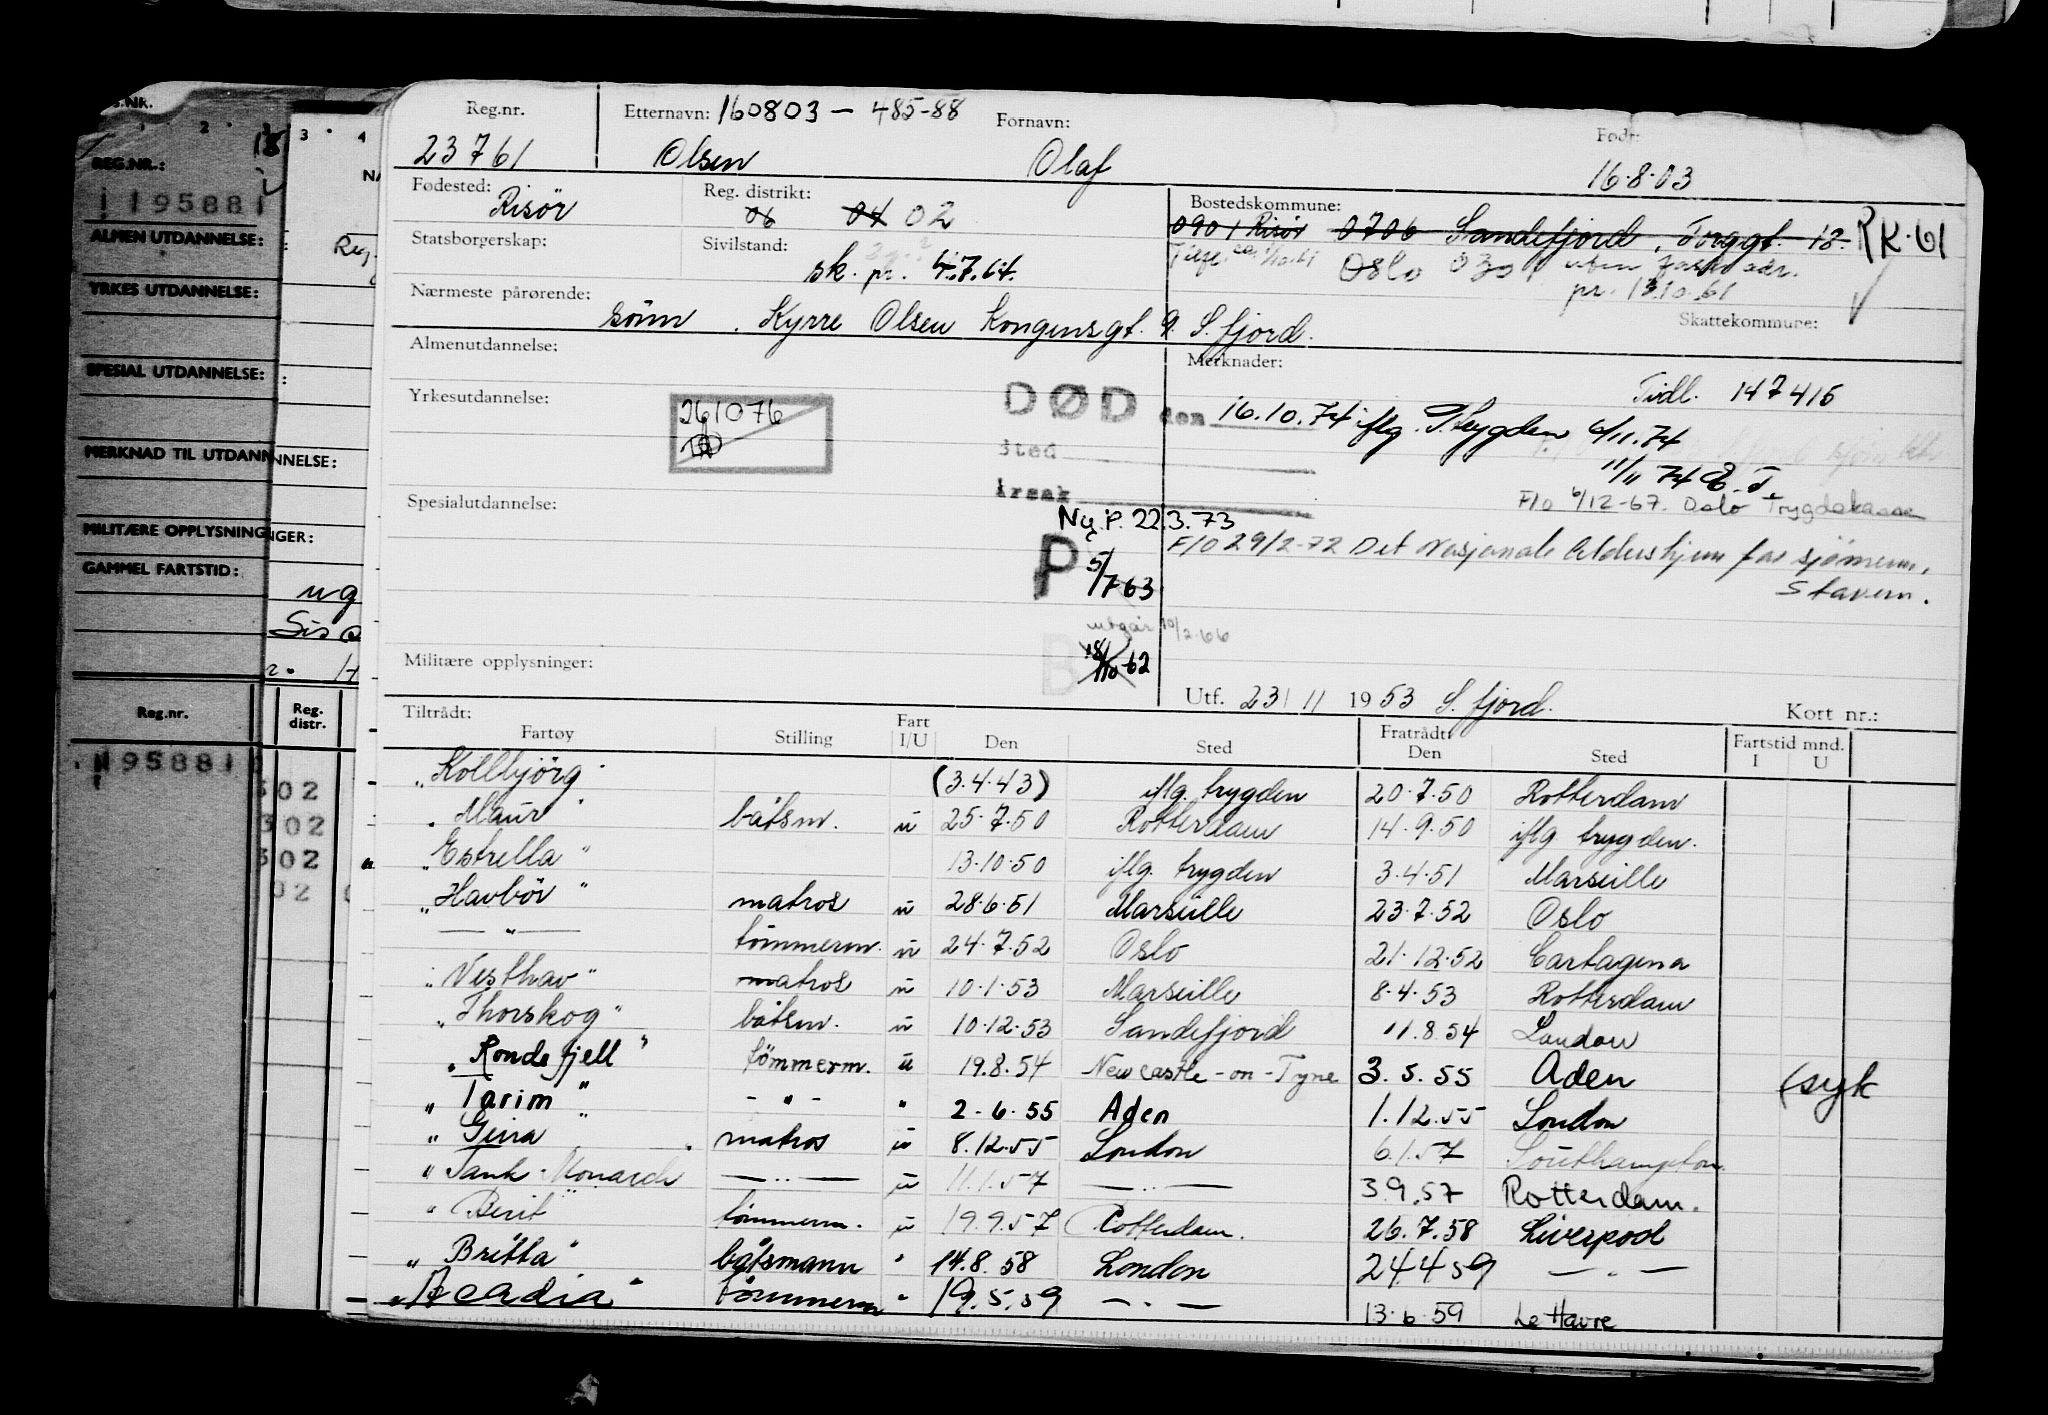 Reg.nr. Etternavn: 160803 - 485-88 Fornavn: Født:
23761 Olsen Olaf 16.8.03
Fødested: Risör Reg. distrikt: 06 04 02 Bostedskommune:
0901 Risör 0706 Sandefjord, Torggt. 18. RK.61
Statsborgerskap: Sivilstand: sk. pr. 4.7.64. Oslo
pr. 13.10.61
Nærmeste pårørende: Skattekommune:
sönn. Kyrre Olsen Kongensgt. 9. S.fjord.
Almenutdannelse: Merknader:
Tidl. 147415
Yrkesutdannelse: 261076 DØD den 16.10.74 iflg. Trygden 6/11.74
Sted
11/11 74 E.T.
Årsak F/O 6/12-67. Oslo Trygdekasse
Spesialutdannelse: Ny P. 22.3.73
F/O 29/2-72 Det Nasjonale Aldershjem for sjömenn,
Stavern.
P 5/7 63
utgår 10/2.66
Militære opplysninger: B 18/10-62
Utf. 23/11 1953 S.fjord. Kort nr.:
Tiltrådt: Fratrådt: Fartstid mnd.
Fartøy Stilling Fart I/U Den Sted Den Sted I U
"Kollbjörg" (3.4.43) iflg. trygden 20.7.50 Rotterdam
"Maur" båtsm. u 25.7.50 Rotterdam 14.9.50 iflg trygden.
"Estrella" 13.10.50 iflg. trygden 3.4.51 Marseille
"Havbör" matros u 28.6.51 Marseille 23.7.52 Oslo
— " — tömmerm. u 24.7.52 Oslo 21.12.52 Cartagena
"Vesthav" matros u 10.1.53 Marseille 8.4.53 Rotterdam
"Thorskog" båtsm. u 10.12.53 Sandefjord 11.8.54 London
"Rondefjell" tömmerm. u 19.8.54 Newcastle-on-Tyne 3.5.55 Aden (syk
"Tarim" - " - " 2.6.55 Aden 1.12.55 London
"Gina" matros u 8.12.55 London 6.1.57 Southampton.
"Tank Monarch — " — u 11.1.57 — " — 3.9.57 Rotterdam.
"Berit" tömmerm. u 19.9.57 Rotterdam. 26.7.58 Liverpool
"Britta" båtsmann " 14.8.58 London 24.4.59 — " —
"Acadia" tömmerm " 19.5.59 — " — 13.6.59 Le Havre
REG.NR.:
1195881
ALMEN UTDANNELSE:
YRKES UTDANNELSE:
SPESIAL UTDANNELSE:
MERKNAD TIL UTDANNELSE:
MILITÆRE OPPLYSNINGER:
GAMMEL FARTSTID:
Reg.nr. Reg. distr.
195881
302
302
302
02